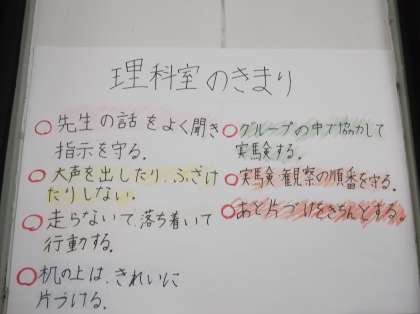 理科室のきまり
○先生の話をよく聞き
指示を守る。
○大声を出したり、ふざけ
たりしない。
○走らないで、落ち着いて
行動する。
○机の上は、きれいに
片づける。
○グループの中で協力して
実験する。
○実験、観察の順番を守る。
○あと片づけをきちんとする。